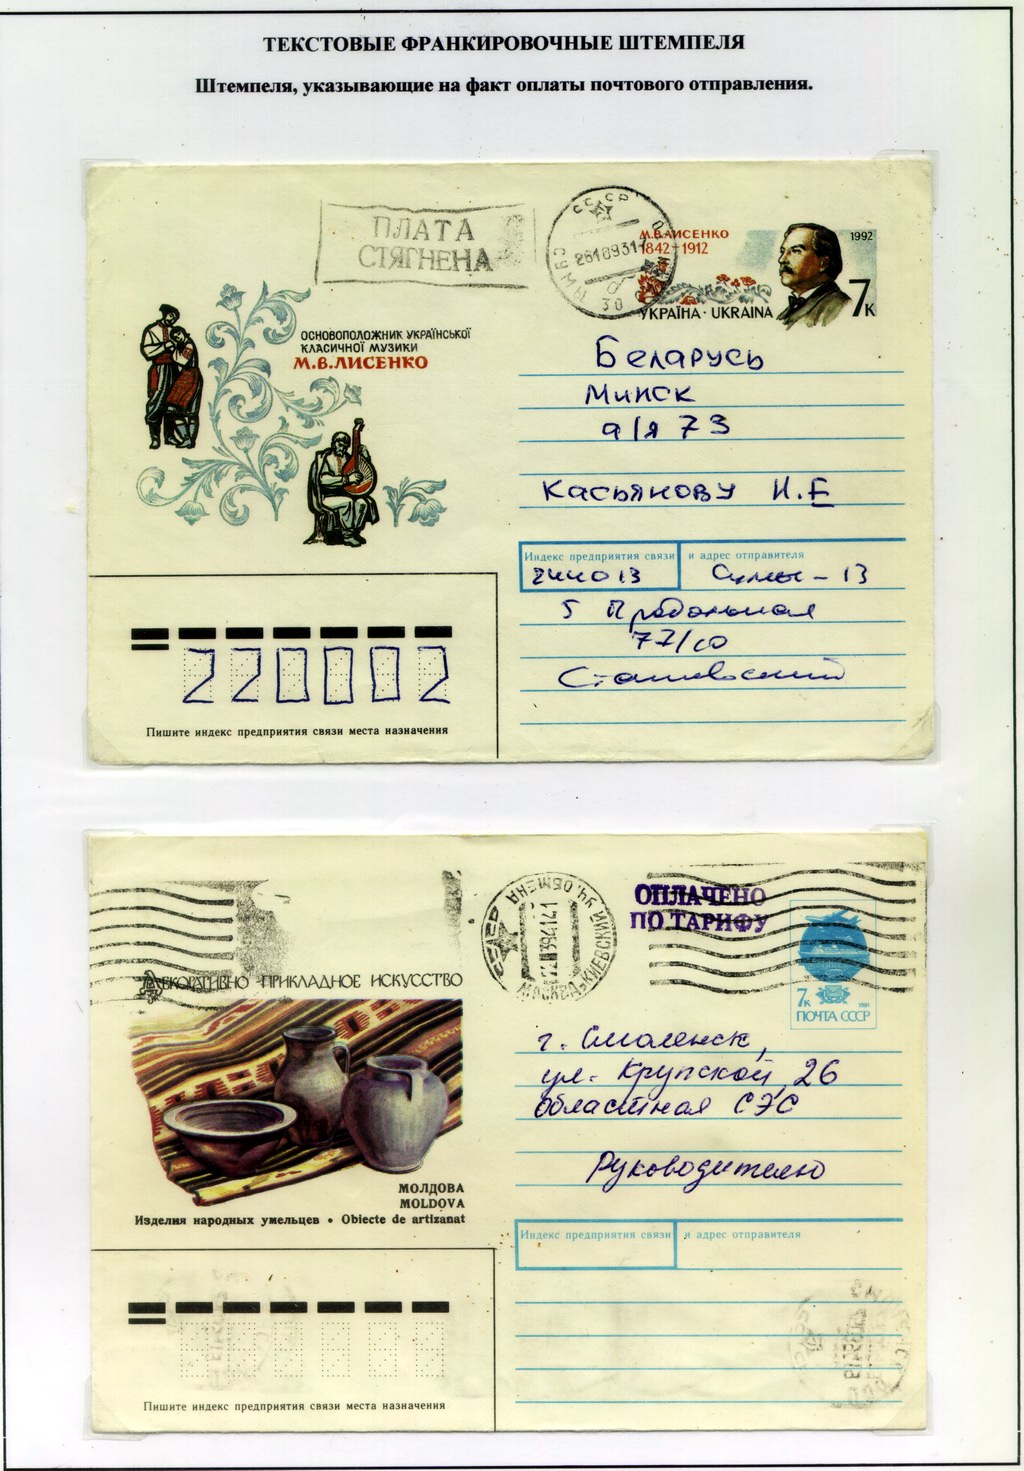 ТЕКСТОВЫЕ ФРАНКИРОВОЧНЫЕ ШТЕМПЕЛЯ
Штемпеля, указывающие на факт оплаты почтового отправления.
ПЛАТА
СТЯГНЕНА
СССР
СУМЫ 30
М.В.ЛИСЕНКО
1842-1912
1992
7к
УКРАЇНА · UKRAINA
ОСНОВОПОЛОЖНИК УКРАЇНСЬКОЇ
КЛАСИЧНОЇ МУЗИКИ
М.В.ЛИСЕНКО
Беларусь
Минск
а/я 73
Касьянову И.Е
Индекс предприятия связи и адрес отправителя
244013 Сумы-13
77/60
220002
Пишите индекс предприятия связи места назначения
ОПЛАЧЕНО
ПО ТАРИФУ
МОСКВА, КИЕВСКИЙ УЧ. ОБМЕНА
7к
ПОЧТА СССР
ДЕКОРАТИВНО-ПРИКЛАДНОЕ ИСКУССТВО
г. Смоленск,
ул. Крупской, 26
Областная СЭС
Руководителю
МОЛДОВА
MOLDOVA
Изделия народных умельцев • Obiecte de artizanat
Индекс предприятия связи и адрес отправителя
Пишите индекс предприятия связи места назначения